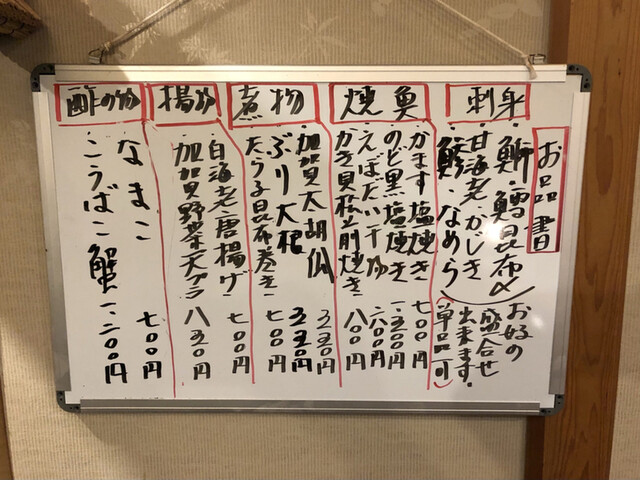 お品書
刺身
・鰤・鱈昆布〆
・甘海老・かじき
・鯵・なめら
お好の
盛合せ
出来ます。
(単品可)
焼魚
・かます塩焼き 七〇〇円
・のど黒塩焼き 一、五〇〇円
・えぼだい干物 六〇〇円
・かき貝殻前焼き 八〇〇円
煮物
・加賀太胡瓜 三五〇円
・ぶり大根 五五〇円
・たら子昆布巻き 七〇〇円
揚物
・白海老唐揚げ 七〇〇円
・加賀野菜天プラ 八五〇円
酢の物
・なまこ 七〇〇円
・こうばこ蟹 一、二〇〇円